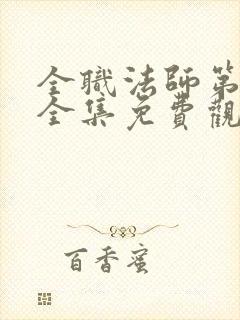 全職法師第
全集免費觀
百香蜜